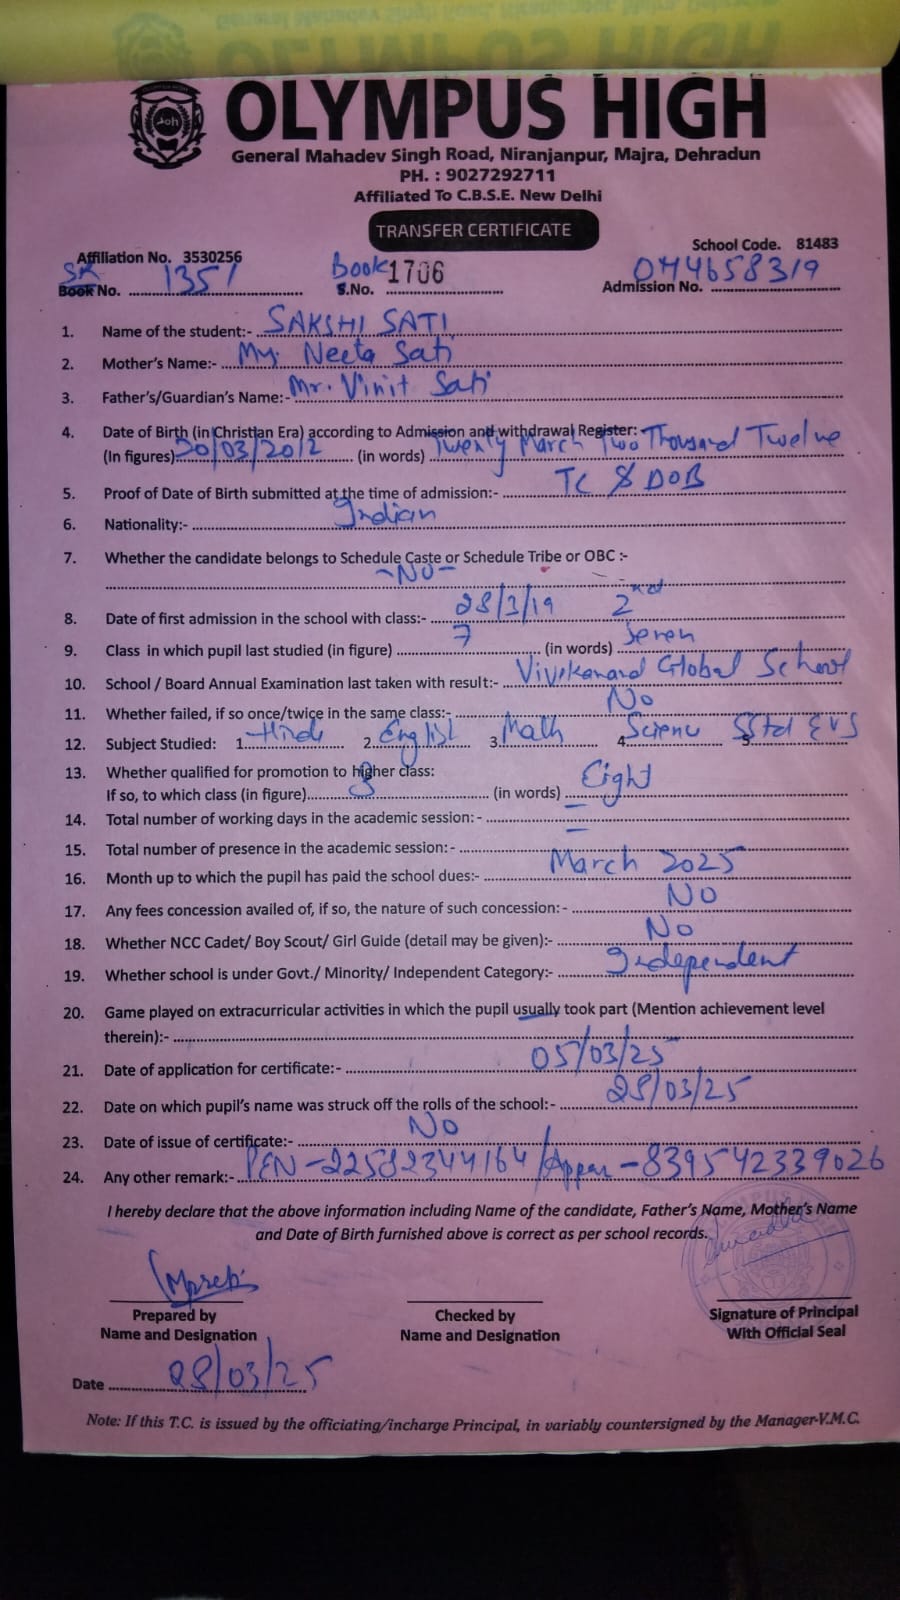 OLYMPUS HIGH
General Mahadev Singh Road, Niranjanpur, Majra, Dehradun
PH. : 9027292711
Affiliated To C.B.S.E. New Delhi
TRANSFER CERTIFICATE
Affiliation No. 3530256 School Code. 81483
SR Book No. 1351 Book S.No. 1706 Admission No. 074658319
1. Name of the student:- SAKSHI SATI
2. Mother's Name:- Neeta Sati
3. Father's/Guardian's Name:- Mr. Vinit Sati
4. Date of Birth (in Christian Era) according to Admission and withdrawal Register:-
(In figures) 20/03/2012 (in words) Twenty March Two Thousand Twelve
5. Proof of Date of Birth submitted at the time of admission:- TC & DOB
6. Nationality:- Indian
7. Whether the candidate belongs to Schedule Caste or Schedule Tribe or OBC :-
-NO-
8. Date of first admission in the school with class:- 28/3/19 2nd
9. Class in which pupil last studied (in figure) 7 (in words) Seven
10. School / Board Annual Examination last taken with result:- Vivekanand Global School
11. Whether failed, if so once/twice in the same class:- No
12. Subject Studied: 1. Hindi 2. English 3. Math 4. Science 5. SStd EVS
13. Whether qualified for promotion to higher class:
If so, to which class (in figure) 8 (in words) Eight
14. Total number of working days in the academic session:- –
15. Total number of presence in the academic session:- –
16. Month up to which the pupil has paid the school dues:- March 2025
17. Any fees concession availed of, if so, the nature of such concession:- NO
18. Whether NCC Cadet/ Boy Scout/ Girl Guide (detail may be given):- No
19. Whether school is under Govt./ Minority/ Independent Category:- Independent
20. Game played on extracurricular activities in which the pupil usually took part (Mention achievement level
therein):-
21. Date of application for certificate:- 05/03/25
22. Date on which pupil's name was struck off the rolls of the school:- 28/03/25
23. Date of issue of certificate:- No
24. Any other remark:- PEN -22582344164 /Appar -839542339026
I hereby declare that the above information including Name of the candidate, Father's Name, Mother's Name
and Date of Birth furnished above is correct as per school records.
Prepared by Checked by Signature of Principal
Name and Designation Name and Designation With Official Seal
Date 28/03/25
Note: If this T.C. is issued by the officiating/incharge Principal, in variably countersigned by the Manager-V.M.C.